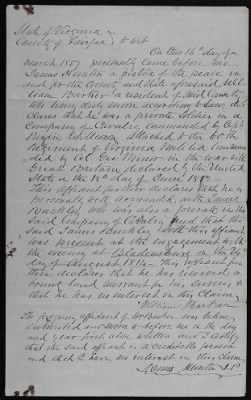 State of Virginia
County of Fairfax to wit
On this 16th day of
March 1857 personally came before me
James Hunter a Justice of the peace in
and for the County and State aforesaid
Barker a resident of said County
who being duly sworn according to Law, de-
clares that he was a private Soldier in a
Company of Cavalry commanded by Capt
attached to the 60th
Regiment of Virginia Militia comman-
ded by Col. Geo Minor in the war with
Great Britain declared by the United
States on the 18th day of June 1812.
This affiant further declares that he is
personally well acquainted with James
Buckley, who was also a private in the
said Company of Cavalry, and that the
said James Buckley with this affiant
was present at the engagement with
the enemy at Bladensburg on the 24
day of August 1814. This affiant fur-
ther declares that he has received a
bounty land warrant for his services &
that he has no interest in this Claim
William Barker
The foregoing affidavit of Wm Barker was taken
subscribed and sworn to before me on the day
and year first above written and I certify
that the said affiant is a creditable person
and that I have no interest in this claim
James Hunter J.P.